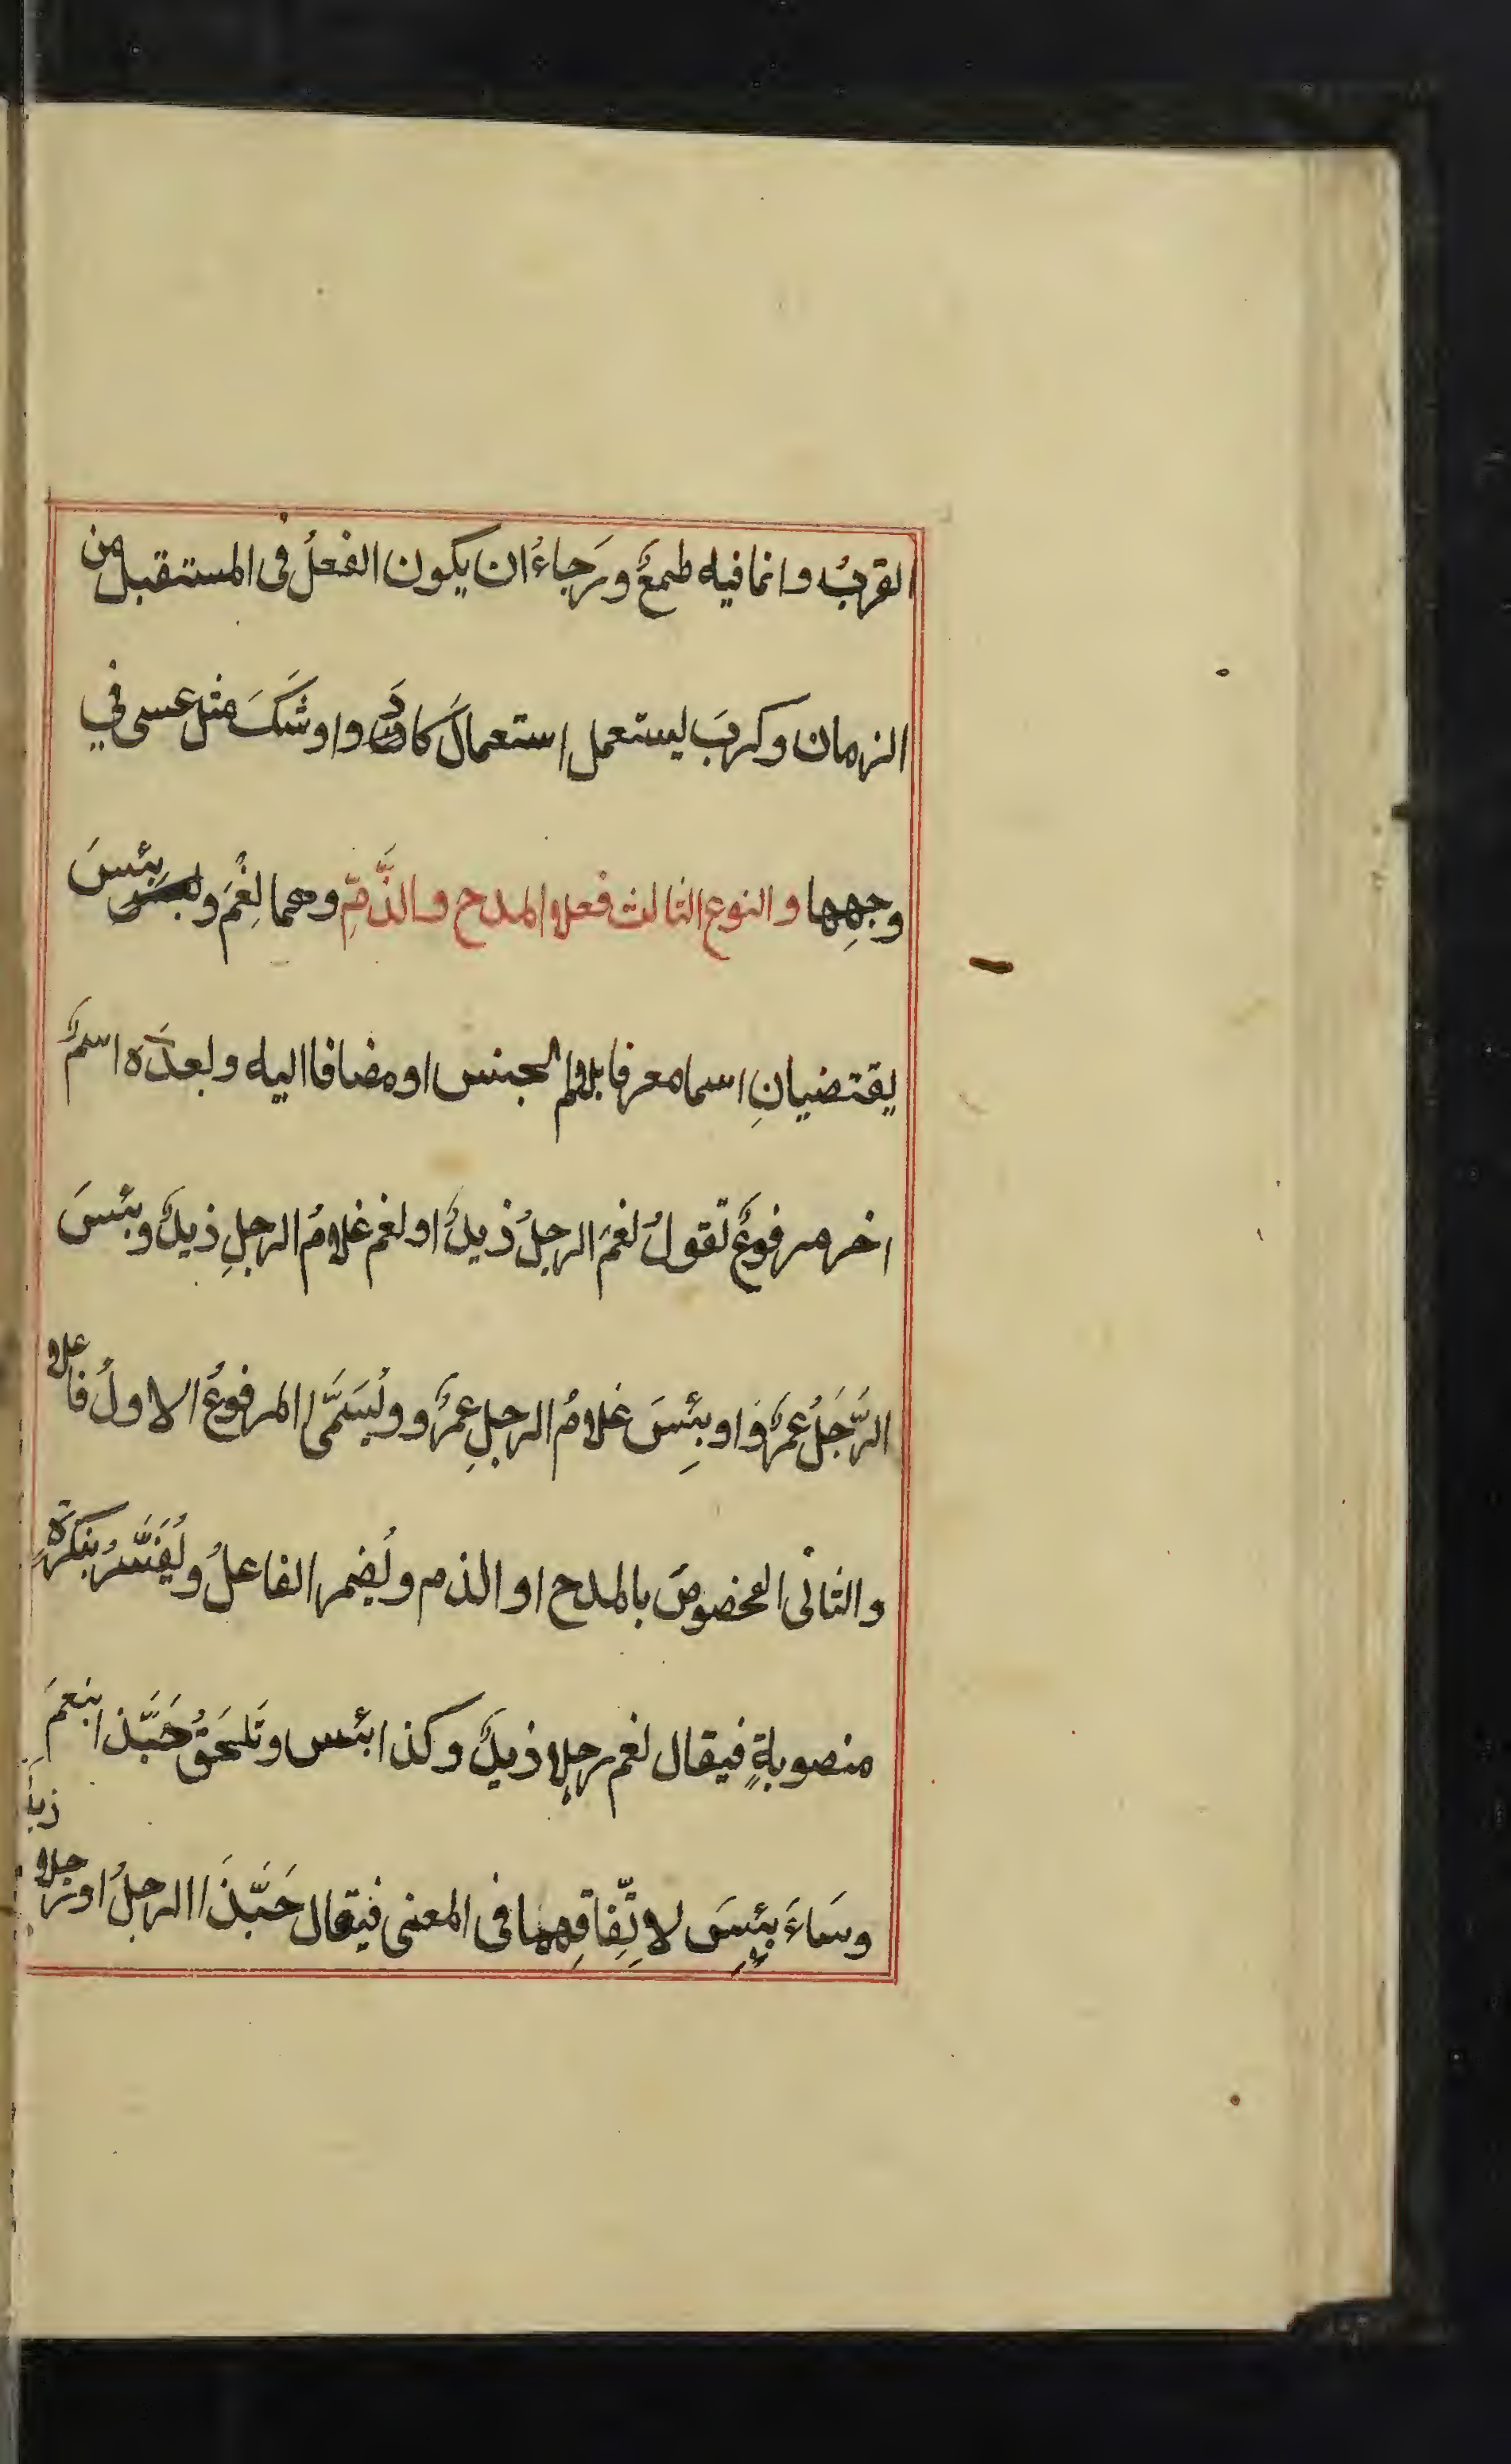 القربُ وانما فيه طمعٌ ورَجاءُ ان يكون الفعلُ فى المستقبل من
الزمان وكربَ يستعمل استعمالَ كادَ واوشَكَ مثل عسى في
وجهِها والنوع الثالث فعلا المدح والذَّمِّ وهما نِعْمَ و بئسَ
يقتضيانِ اسما معرفا بلام الجنس او مضافا اليه وبعدَه اسمٌ
اخر مرفوعٌ تقولُ نعمَ الرجلُ زيدٌ او نعم غلامُ الرجلِ زيدٌ وبئسَ
الرَّجُلُ عمرٌو او بِئسَ غلامُ الرجلِ عمرٌو ويُسَمَّى المرفوعُ الاولُ فاعلا
والثانى المخصوصَ بالمدح او الذم ويُضمر الفاعلُ ويُفَسَّرُ بنكرَةٍ
منصوبةٍ فيقال نعم رجلا زيدٌ وكذا بئس وتَلحَقُ حَبَّذا بنعمَ
زيدٌ
وسَاءَ بِئسَ لاتِّفاقِهما فى المعنى فيقال حَبَّذَا الرجلُ او رجلا